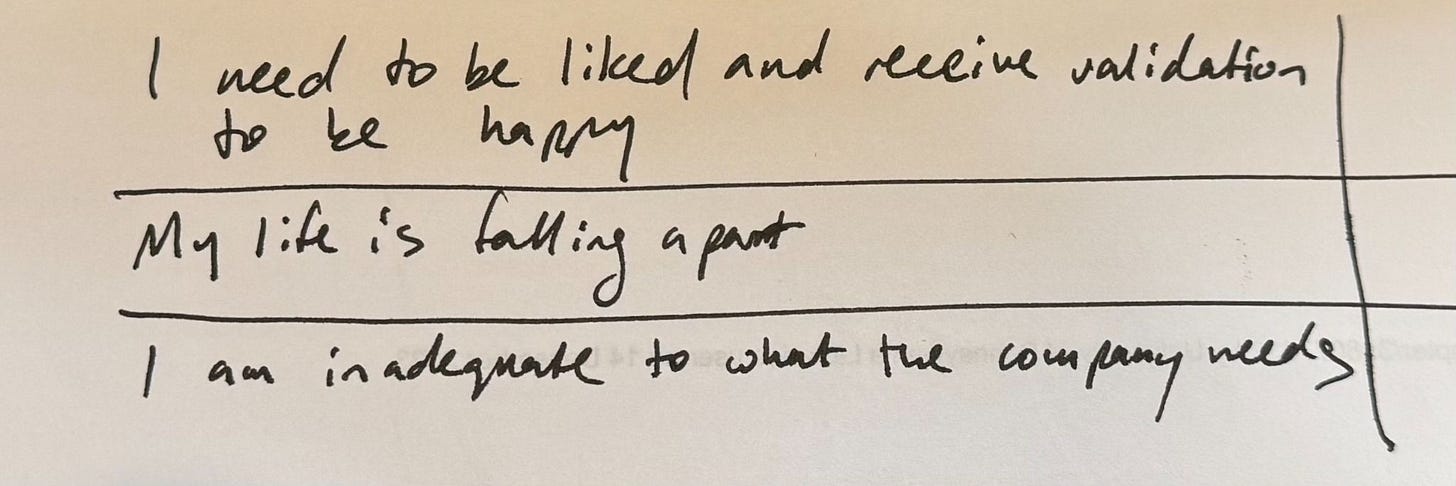 I need to be liked and receive validation
to be happy
My life is falling apart
I am inadequate to what the company needs